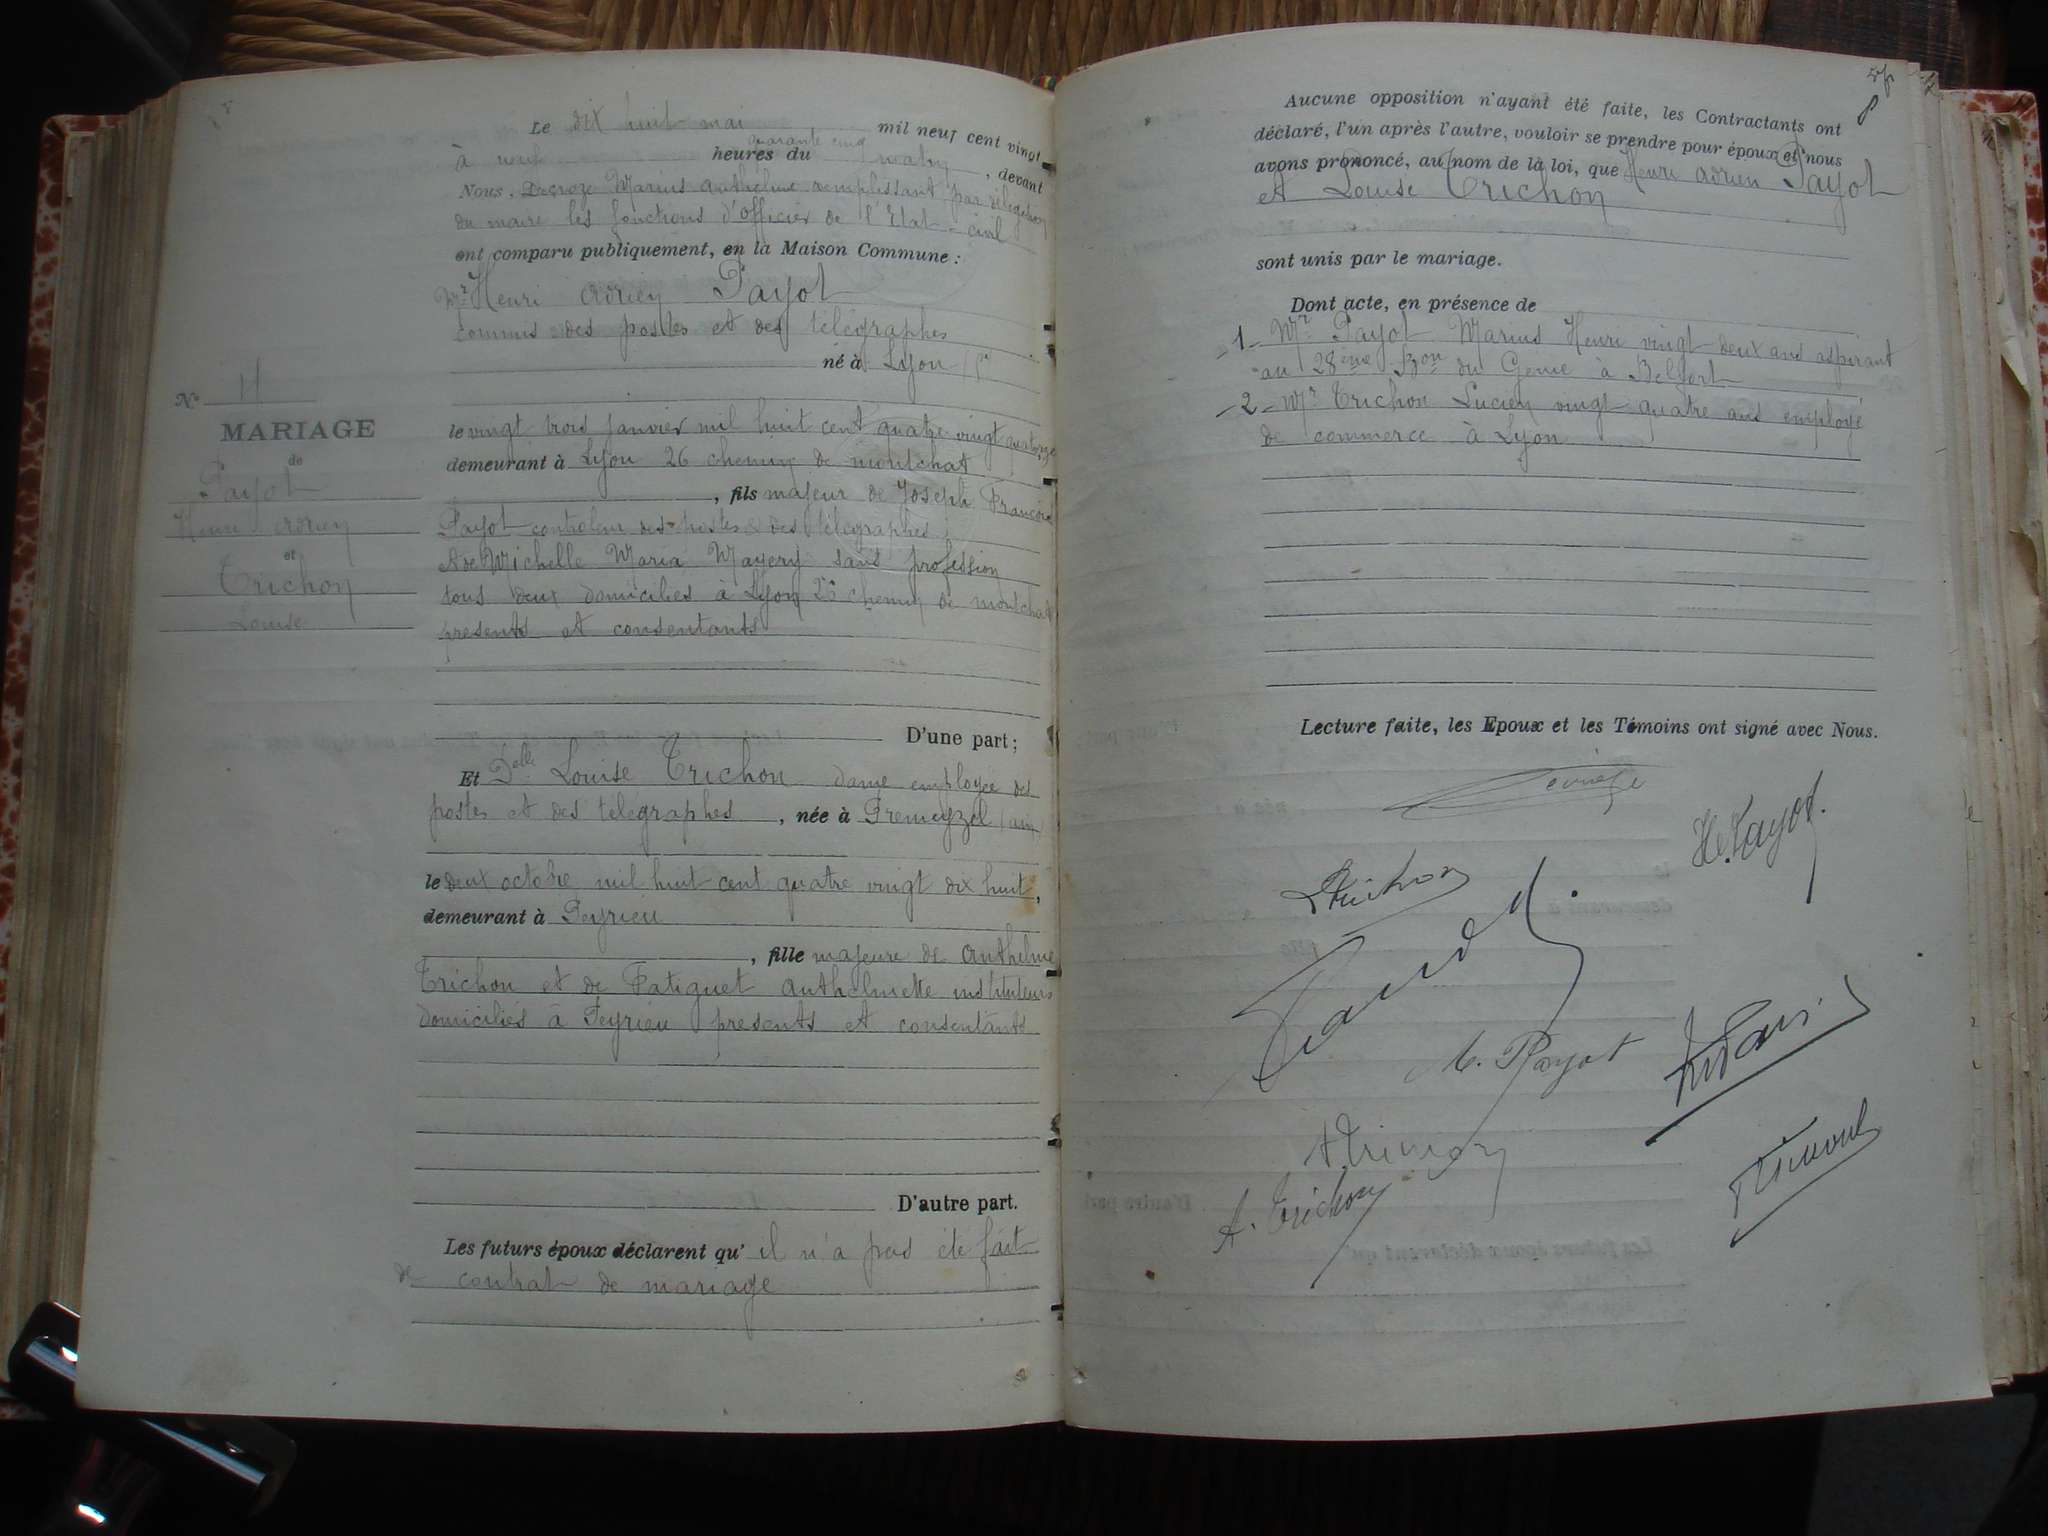 Le dix huit mai mil neuf cent vingt
quarante cinq
à neuf heures du matin, devant
Nous, Desroze Marius Anthelme remplissant par délégation
du maire les fonctions d'officier de l'Etat-civil
ont comparu publiquement, en la Maison Commune :
Mr Henri Adrien Payot
commis des postes et des télégraphes
né à Lyon
le vingt trois janvier mil huit cent quatre vingt quatorze
demeurant à Lyon 26 chemin de montchat
, fils majeur de Joseph François
Payot controleur des postes & des télégraphes
et de Michelle Maria Mayery sans profession
tous deux domiciliés à Lyon 26 chemin de montchat
presents et consentants
D'une part ;
Et Delle Louise Trichon dame employée des
postes et des télégraphes, née à Premeyzel (ain)
le deux octobre mil huit cent quatre vingt dix huit,
demeurant à Peyrieu
, fille majeure de Anthelme
Trichon et de Patiguet Anthelmette instituteurs
domiciliés à Peyrieu presents et consentants
D'autre part.
Les futurs époux déclarent qu'il n'a pas été fait
de contrat de mariage
No 4
MARIAGE
de
Payot
Henri Adrien
et
Trichon
Louise
Aucune opposition n'ayant été faite, les Contractants ont
déclaré, l'un après l'autre, vouloir se prendre pour époux et nous
avons prononcé, au nom de la loi, que Henri Adrien Payot
et Louise Trichon
sont unis par le mariage.
Dont acte, en présence de
-1- Mr Payot Marius Henri vingt deux ans aspirant
au 28ème Bon du Genie à Belfort
-2- Mr Trichon Lucien vingt quatre ans employé
de commerce à Lyon
Lecture faite, les Epoux et les Témoins ont signé avec Nous.
H. Payot.
Trichon
M. Payot
A. Trichon